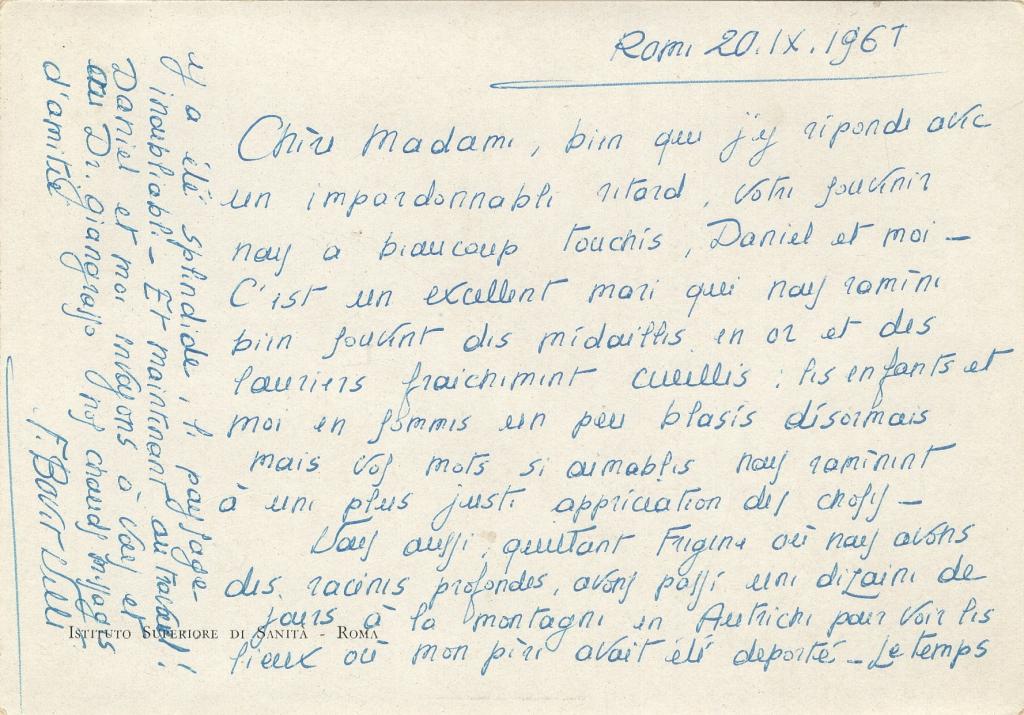 Rome 20.IX.1961
Chère Madame, bien que j'y réponde avec
un impardonnable retard, votre souvenir
nous a beaucoup touchés, Daniel et moi -
C'est un excellent mari qui nous ramène
bien souvent des médailles en or et des
lauriers fraichement cueillis : les enfants et
moi en sommes un peu blasés désormais
mais vos mots si aimables nous ramènent
à une plus juste appréciation des choses -
Nous aussi, quittant Frigene où nous avons
des racines profondes, avons passé une dizaine de
jours à la montagne en Autriche pour voir les
lieux où mon père avait été deporté - Le temps
y a été splendide, le paysage
inoubliable - Et maintenant au travail !
Daniel et moi envoyons à vous et
au Dr. Giangrasso nos chauds messages
d'amitié
F. Bovet
ISTITUTO SUPERIORE DI SANITÀ - ROMA